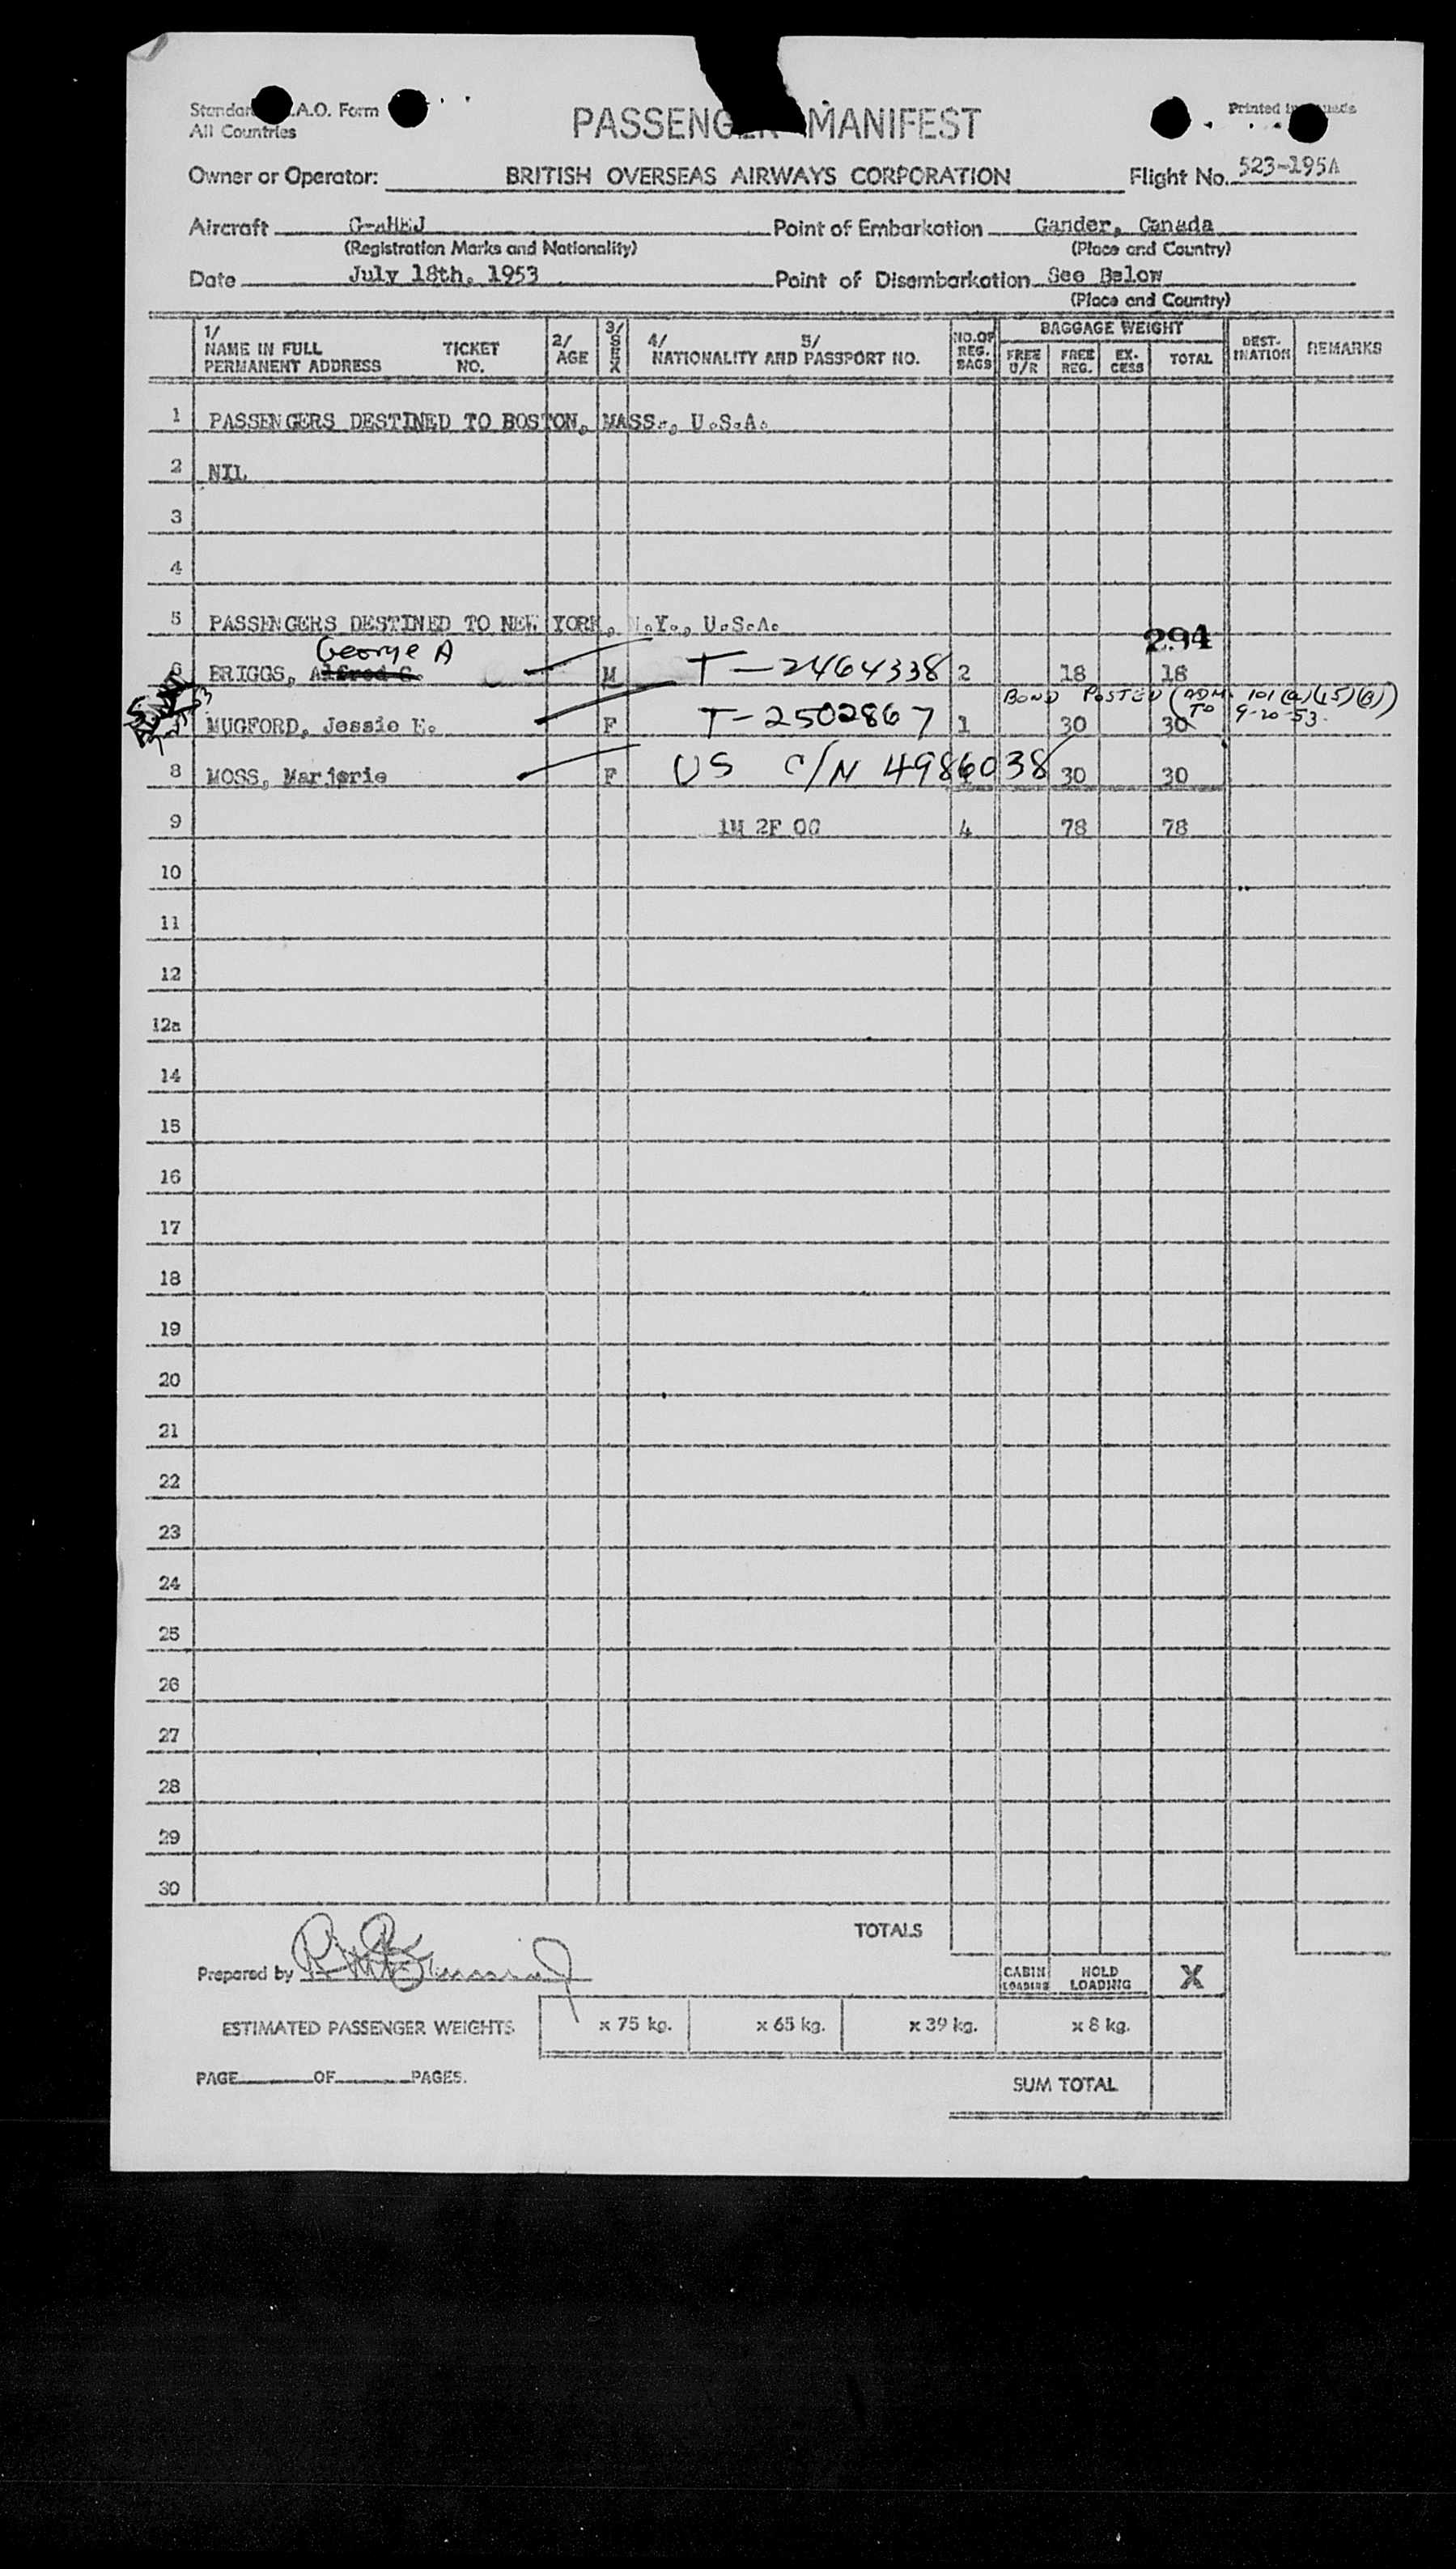 A.O. Form
All Countries
PASSENGER MANIFEST
Printed in
Owner or Operator: BRITISH OVERSEAS AIRWAYS CORPORATION Flight No. 523-195A
Aircraft G-AHEJ Point of Embarkation Gander, Canada
(Registration Marks and Nationality) (Place and Country)
Date July 18th, 1953 Point of Disembarkation See Below
(Place and Country)
1/ NAME IN FULL PERMANENT ADDRESS TICKET NO. 2/ AGE 3/ SEX 4/ 5/ NATIONALITY AND PASSPORT NO. NO. OF REG. BAGS BAGGAGE WEIGHT FREE U/R FREE REG. EX-CESS TOTAL DEST-INATION REMARKS
1 PASSENGERS DESTINED TO BOSTON, MASS., U.S.A.
2 NIL
3
4
5 PASSENGERS DESTINED TO NEW YORK, N.Y., U.S.A.
George A 294
6 BRIGGS, Alfred C. M T-2464338 2 18 18
BOND POSTED (ADM. 101(a)(15)(B))
TO 9-20-53
MUGFORD, Jessie E. F T-2502867 1 30 30
8 MOSS, Marjorie F US C/N 4986038 30 30
9 1M 2F 0C 4 78 78
10
11
12
12a
14
15
16
17
18
19
20
21
22
23
24
25
26
27
28
29
30
TOTALS
Prepared by
CABIN LOADING HOLD LOADING X
ESTIMATED PASSENGER WEIGHTS x 75 kg. x 65 kg. x 39 kg. x 8 kg.
PAGE OF PAGES.
SUM TOTAL